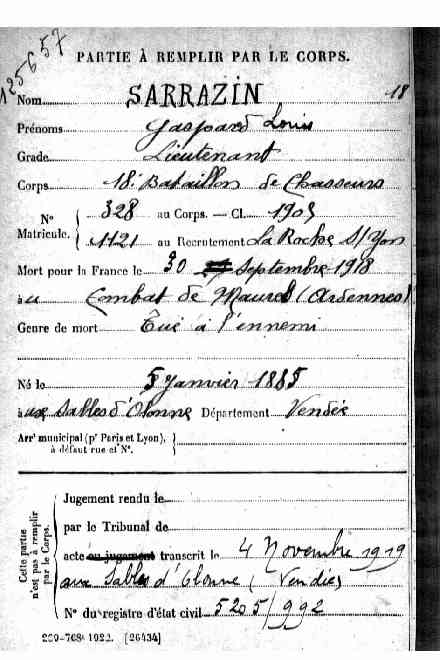 125657
PARTIE À REMPLIR PAR LE CORPS.
18
Nom SARRAZIN
Prénoms Gaspard Louis
Grade Lieutenant
Corps 18e Bataillon de Chasseurs
N° Matricule. 328 au Corps. — Cl. 1905
1121 au Recrutement La Roche s/Yon
Mort pour la France le 30 Septembre 1918
au Combat de (Ardennes)
Genre de mort Tué à l'ennemi
Né le 5 Janvier 1885
aux Sables d'Olonne Département Vendée
Arrt municipal (pr Paris et Lyon),
à défaut rue et N°.
Cette partie n'est pas à remplir par le Corps.
Jugement rendu le
par le Tribunal de
acte ou jugement transcrit le 4 Novembre 1919
aux Sables d'Olonne (Vendée)
N° du registre d'état civil 525/992
[26434]